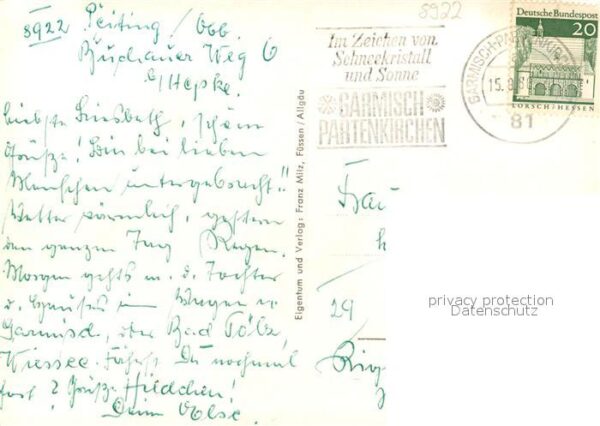 8922 Peiting / Obb.
Buchauer Weg 6
b/ Hepke.
Liebste Liesbeth, schöne
Grüße! Bin bei lieben
Menschen untergebracht!!
Wetter gestern
den ganzen Tag Regen.
Morgen gehts m. d. Tochter
d. Hauses im Wagen n.
Garmisch, oder Bad Tölz,
Wiessee. Fährst Du nochmal
fort? Grüße Hildchen!
Deine Else.
Eigentum und Verlag: Franz Milz, Füssen / Allgäu
8922
Im Zeichen von
Schneekristall
und Sonne
GARMISCH
PARTENKIRCHEN
GARMISCH-PARTENKIRCHEN
15.9.
81
Deutsche Bundespost
20
LORSCH/HESSEN
Frau
29
privacy protection
Datenschutz